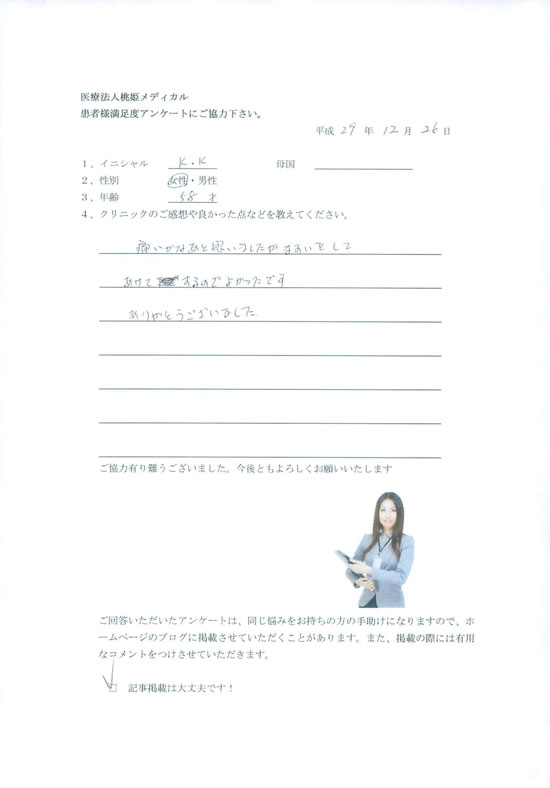 医療法人桃姫メディカル
患者様満足度アンケートにご協力下さい。
平成 29 年 12 月 26 日
1、イニシャル K.K 母国
2、性別 女性・男性
3、年齢 58 才
4、クリニックのご感想や良かった点などを教えてください。
痛いかなあと思いましたがますいをして
あけて するのでよかったです
ありがとうございました
ご協力有り難うございました。今後ともよろしくお願いいたします
ご回答いただいたアンケートは、同じ悩みをお持ちの方の手助けになりますので、ホ
ームページのブログに掲載させていただくことがあります。また、掲載の際には有用
なコメントをつけさせていただきます。
記事掲載は大丈夫です！